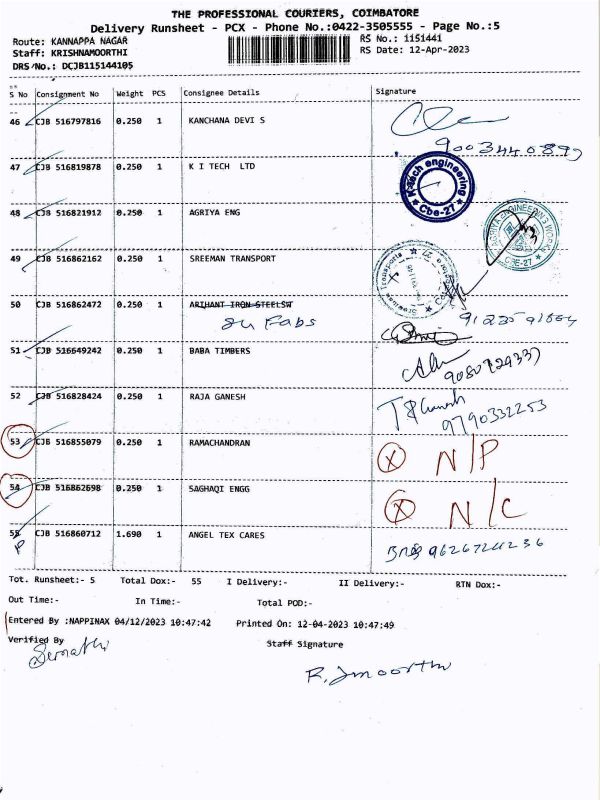 THE PROFESSIONAL COURIERS, COIMBATORE
Delivery Runsheet - PCX - Phone No.:0422-3505555 - Page No.:5
Route: KANNAPPA NAGAR RS No.: 1151441
Staff: KRISHNAMOORTHI RS Date: 12-Apr-2023
DRS/No.: DCJB115144105
S No Consignment No Weight PCS Consignee Details Signature
46 CJB 516797816 0.250 1 KANCHANA DEVI S
47 CJB 516819878 0.250 1 K I TECH LTD
K-tech engineering
Cbe-27
48 CJB 516821912 0.250 1 AGRIYA ENG
AGRIYA ENGINEERING WORKS
CBE-27
49 CJB 516862162 0.250 1 SREEMAN TRANSPORT
50 CJB 516862472 0.250 1 ARIHANT IRON STEELSW
Fabs
51 CJB 516649242 0.250 1 BABA TIMBERS
52 CJB 516828424 0.250 1 RAJA GANESH
9790332253
53 CJB 516855079 0.250 1 RAMACHANDRAN X N/P
54 CJB 516862698 0.250 1 SAGHAQI ENGG X N/C
55 CJB 516860712 1.690 1 ANGEL TEX CARES
P
Tot. Runsheet:- 5 Total Dox:- 55 I Delivery:- II Delivery:- RTN Dox:-
Out Time:- In Time:- Total POD:-
Entered By :NAPPINAX 04/12/2023 10:47:42 Printed On: 12-04-2023 10:47:49
Verified By Staff Signature